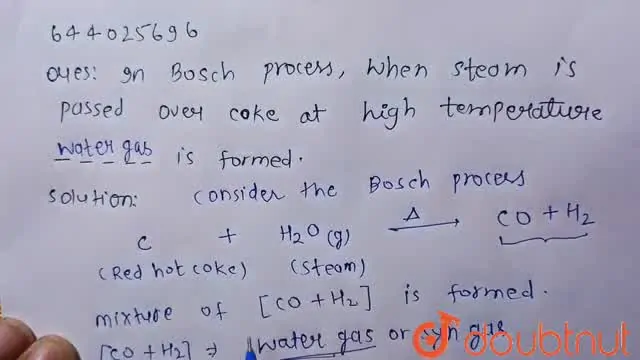 644025696
Ques: In Bosch process, When steam is
passed over coke at high temperature
water gas is formed.
Solution: Consider the Bosch process
C + H2O(g) Δ → CO + H2
(Red hot coke) (steam)
mixture of [CO + H2] is formed.
[CO + H2] ⇒ water gas or syn gas
doubtnut